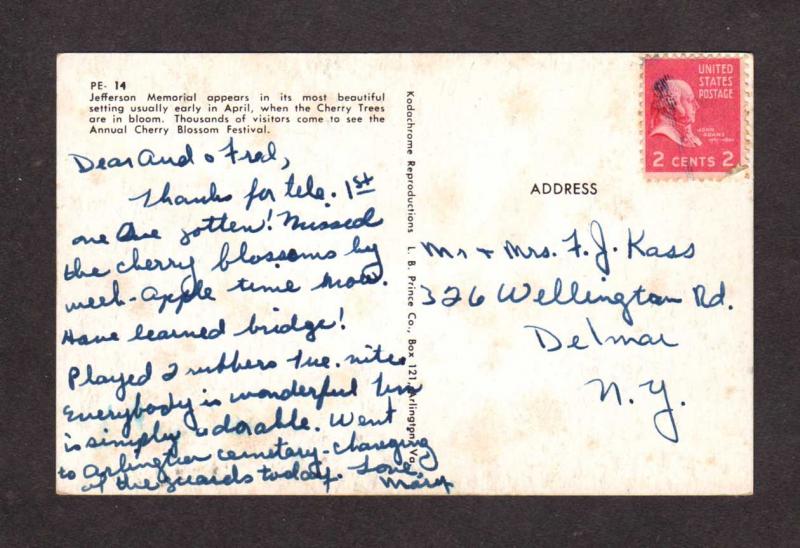 PE- 14
Jefferson Memorial appears in its most beautiful
setting usually early in April, when the Cherry Trees
are in bloom. Thousands of visitors come to see the
Annual Cherry Blossom Festival.
Dear And o Fral,
Thanks for tele. 1st
one I've gotten! Missed
the cherry blossoms by
week-apple time now.
Have learned bridge!
Played 2 rubbers Tue. nite
Everybody is wonderful
is simply adorable. Went
to Arlington cemetary-changing
of the guards today. Love,
Mary
Kodachrome Reproductions L. B. Prince Co., Box 121, Arlington, Va.
UNITED
STATES
POSTAGE
JOHN
ADAMS
2 CENTS 2
ADDRESS
Mr + Mrs. F. J. Kass
326 Wellington Rd.
Delmar
N.Y.